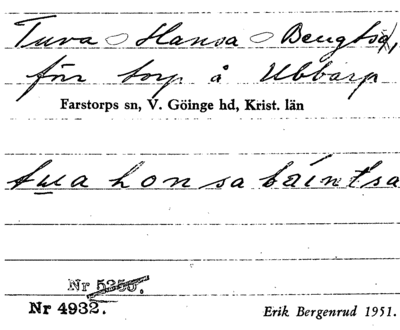 Tuva - Hansa - Bengtsa,
förr torp å Ubbarp
Farstorps sn, V. Göinge hd, Krist. län
tua honsa báintsa
Nr 5250.
Nr 4932.
Erik Bergenrud 1951.